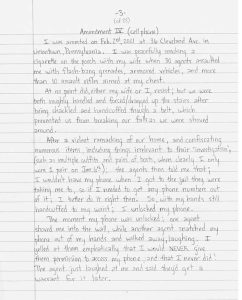 -3-
(of 15)
Amendment IV (cellphone)
I was arrested on Feb. 2nd, 2021 at 36 Cleveland Ave. in
Uniontown, Pennsylvania. I was peacefully smoking a
cigarette on the porch with my wife when 30 agents assaulted
me with flash-bang grenades, armored vehicles, and more
than 10 assault rifles aimed at my chest.
At no point did either my wife or I, resist; but we were
both roughly handled and forced/dragged up the stairs after
being shackled and handcuffed through a belt, which
prevented us from breaking our fall as we were shoved
around.
After a violent ransacking of our home, and confiscating
numerous items including things irrelevant to their "investigation",
(such as multiple outfits and pairs of boots, when clearly I only
wore 1 pair on Jan. 6th); the agents then told me that;
I wouldn't have my phone when I got to the jail they were
taking me to, so if I needed to get any phone numbers out
of it; I better do it right then. So, with my hands still
handcuffed to my waist; I unlocked my phone.
The moment my phone was unlocked; one agent
shoved me into the wall, while another agent snatched my
phone out of my hands and walked away, laughing. I
yelled at them emphatically that I would NEVER give
them permission to access my phone and that I never did!
The agent just laughed at me and said they'd get a
warrant for it later.